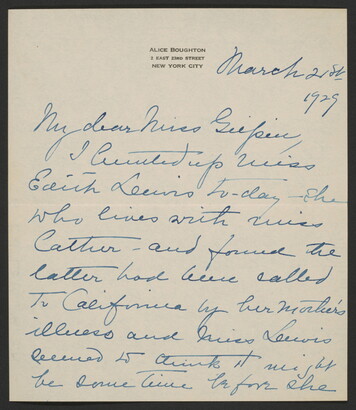 ALICE BOUGHTON
3 EAST 23RD STREET
NEW YORK CITY
March 21st
1929
My dear Miss Gilpin,
I hunted up Miss
Edith Lewis to-day – she
who lives with Miss
Cather – and found the
latter had been called
to California by her mother's
illness and Miss Lewis
seemed to think it might
be some time before she